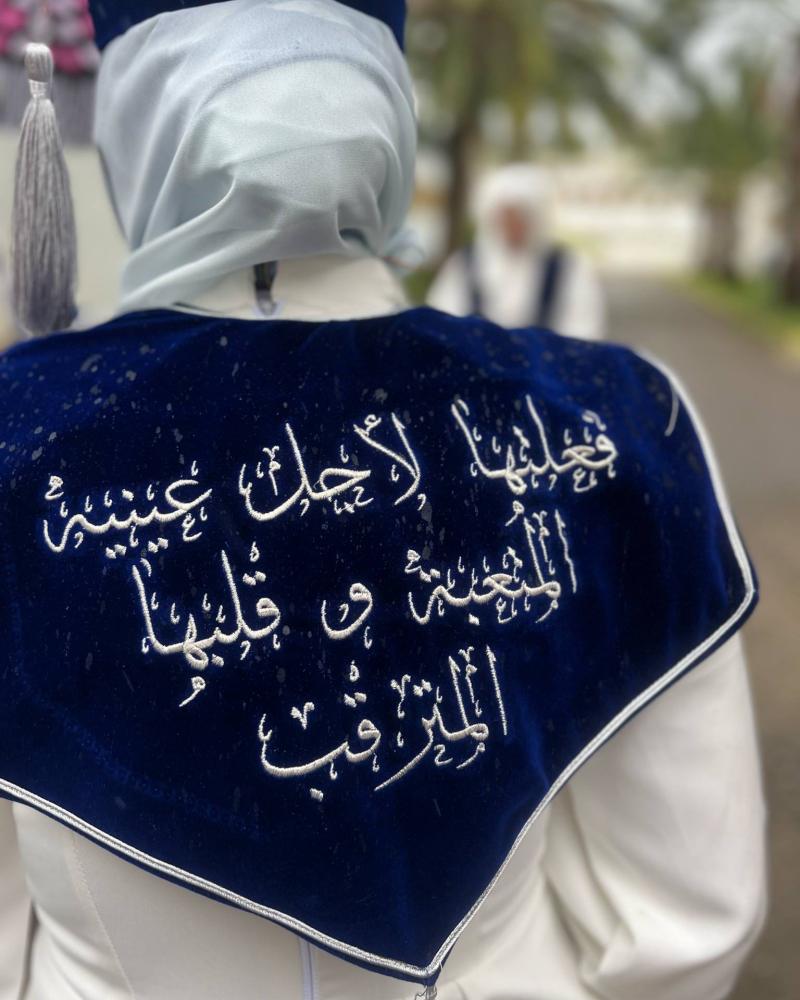 فعلتها لأجل عينيه
المتعبة و قلبها
المترقب